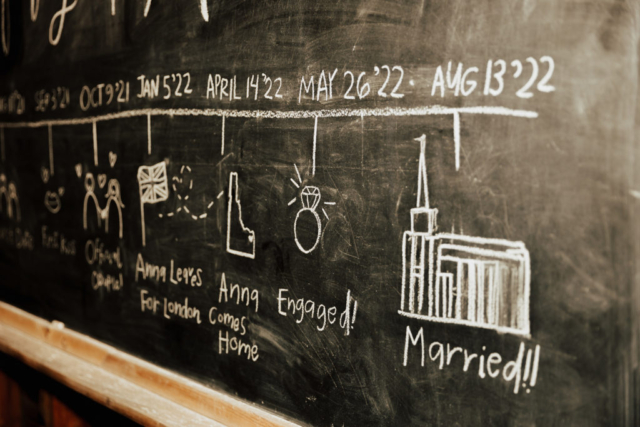 SEP 3 '21 OCT 9 '21 JAN 5 '22 APRIL 14 '22 MAY 26 '22 · AUG 13 '22
First Kiss
Official
Couple!
Anna Leaves
For London
Anna
Comes
Home
Engaged!
Married!!